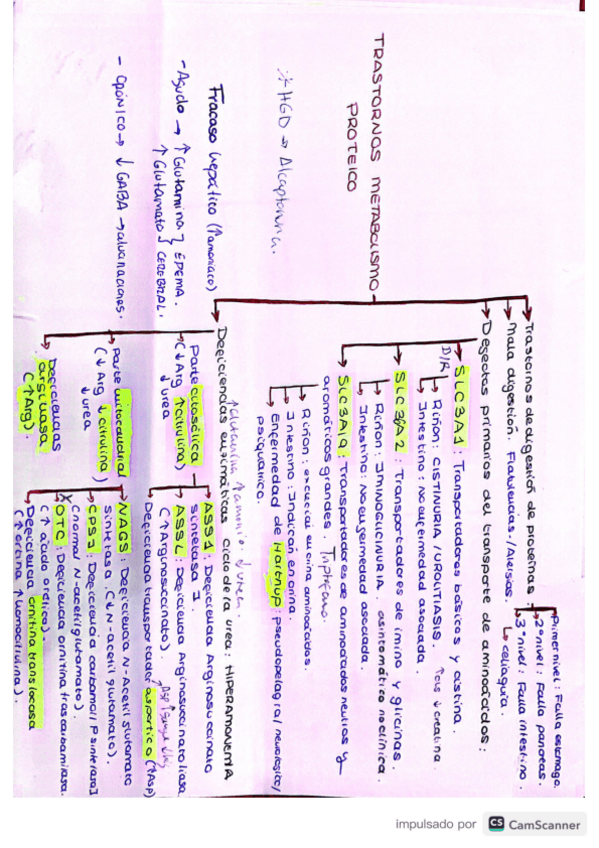 TRASTORNOS METABOLISMO
PROTEICO
Trastornos de digestión de proteínas.
Mala digestión. Flatulencias/Aversios.
Primer nivel: Falla estomago.
2º nivel: Falla pancreas.
3º nivel: Falla intestino.
celiaquía.
Defectos primarios del transporte de aminoácidos:
SLC3A1: Transportadores basicos y cistina.
D/R
Riñon: CISTINURIA/UROLITIASIS.
Intestino: No enfermedad asociada.
SLC36A2: Transportadores de imino y glicinas.
Riñon: IMINOGLICINURIA. asintomático no clínica.
Intestino: No enfermedad asociada.
SLC3A19: Transportadores de aminoácidos neutros y
aromáticos grandes. Triptofano.
Riñon: excrecial en orina aminoácidos.
Intestino: Indican en orina.
Enfermedad de Hartnup pseudopelagra/neurologico/
psiquiatrico.
Deficiencias enzimáticas ciclo de la urea: HIPERAMONEMIA
↑Glutamina ↑amonio ↓urea.
Parte citosólica
(↓Arg ↑citrulina)
↓urea
ASS1: Deficiencia Arginosuccinato
sintetasa 1.
ASSL: Deficiencia Arginosuccinato liasa
(↑Arginosuccinato).
Deficiencia transportador aspartico (↑Asp)
Parte mitocondrial
(↓Arg ↓citrulina)
↓urea
NAGS: Deficiencia N-Acetil glutamato
sintetasa. (↓N-acetil glutamato).
CPS1: Deficiencia carbamoil P sintetasa 1
(normal N-acetilglutamato).
OTC: Deficiencia ornitina trascarbamilasa.
(↑acido orótico).
Deficiencia ornitina translocasa
(↑orcina ↑homocitrulina).
Deficiencias
arginasa
(↑Arg).
* HGD → Alcaptonuria.
Fracaso hepático (↑amoniaco)
- Agudo → ↑Glutamina } EDEMA
↑Glutamato } CEREBRAL.
- Crónico → ↓GABA →
impulsado por CS CamScanner